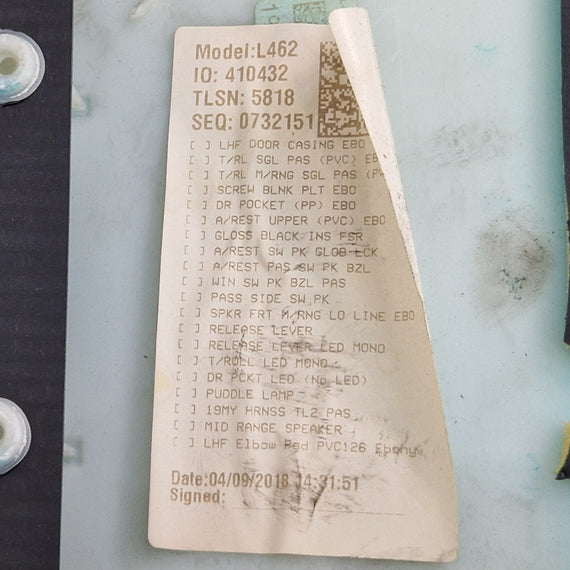 Model:L462
IO: 410432
TLSN: 5818
SEQ: 0732151
[ ] LHF DOOR CASING EBO
[ ] T/RL SGL PAS (PVC) EB
[ ] T/RL M/RNG SGL PAS (P
[ ] SCREW BLNK PLT EBO
[ ] DR POCKET (PP) EBO
[ ] A/REST UPPER (PVC) EBO
[ ] GLOSS BLACK INS FSR
[ ] A/REST SW PK GLOB LCK
[ ] A/REST PAS SW PK BZL
[ ] WIN SW PK BZL PAS
[ ] PASS SIDE SW PK
[ ] SPKR FRT M/RNG LO LINE EBO
[ ] RELEASE LEVER
[ ] RELEASE LEVER LED MONO
[ ] T/ROLL LED MONO
[ ] DR PCKT LED (No LED)
[ ] PUDDLE LAMP
[ ] 19MY HRNSS TL2 PAS
[ ] MID RANGE SPEAKER
[ ] LHF Elbow Pad PVC126 Ebony
Date:04/09/2018 14:31:51
Signed: